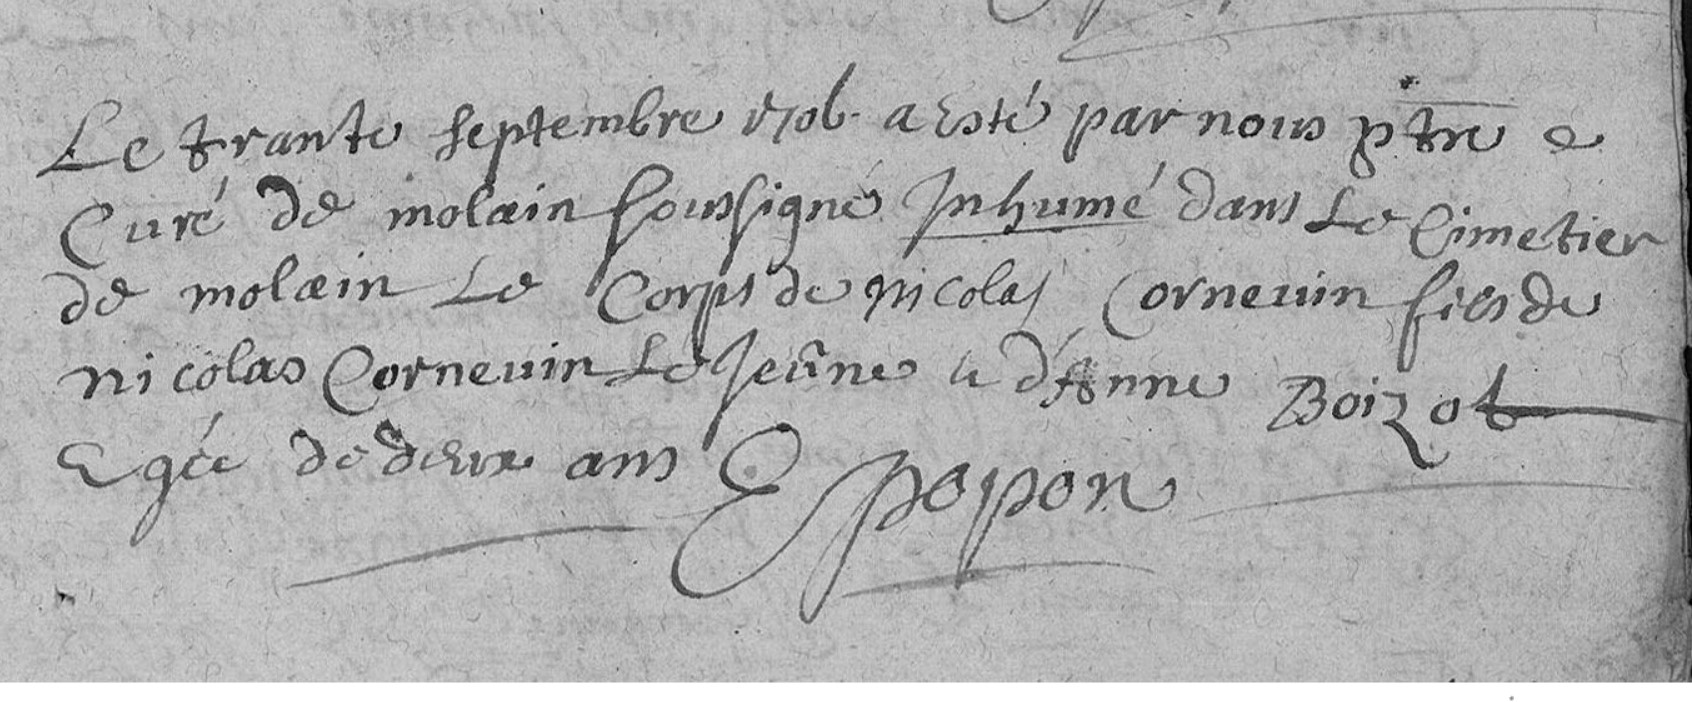 Le trante septembre 1706 a esté par nous ptre e
Curé de molain soussigné Inhumé dans Le Cimetier
de molain Le Corps de nicolas Cornevin fils de
nicolas Cornevin Le Jeune & d'Anne Boizot
Egée de deux ans E popon